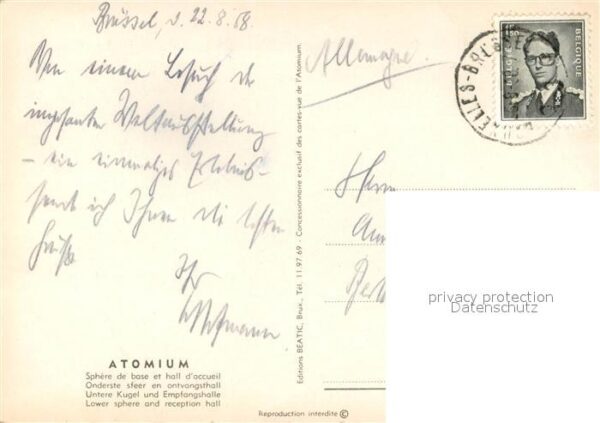 Brüssel, d. 22.8.58
Von einem Besuch der
imposanten Weltausstellung
– ein einmaliges Erlebnis –
sende ich Ihnen die besten
Grüße
Ihr
ATOMIUM
Sphère de base et hall d'accueil
Onderste sfeer en ontvangsthall
Untere Kugel und Empfangshalle
Lower sphere and reception hall
Editions BEATIC, Brux., Tél. 11 97 69 - Concessionnaire exclusif des cartes-vue de l'Atomium
Reproduction interdite ©
Allemagne
1F50
BELGIE
BELGIQUE
Herrn
privacy protection
Datenschutz